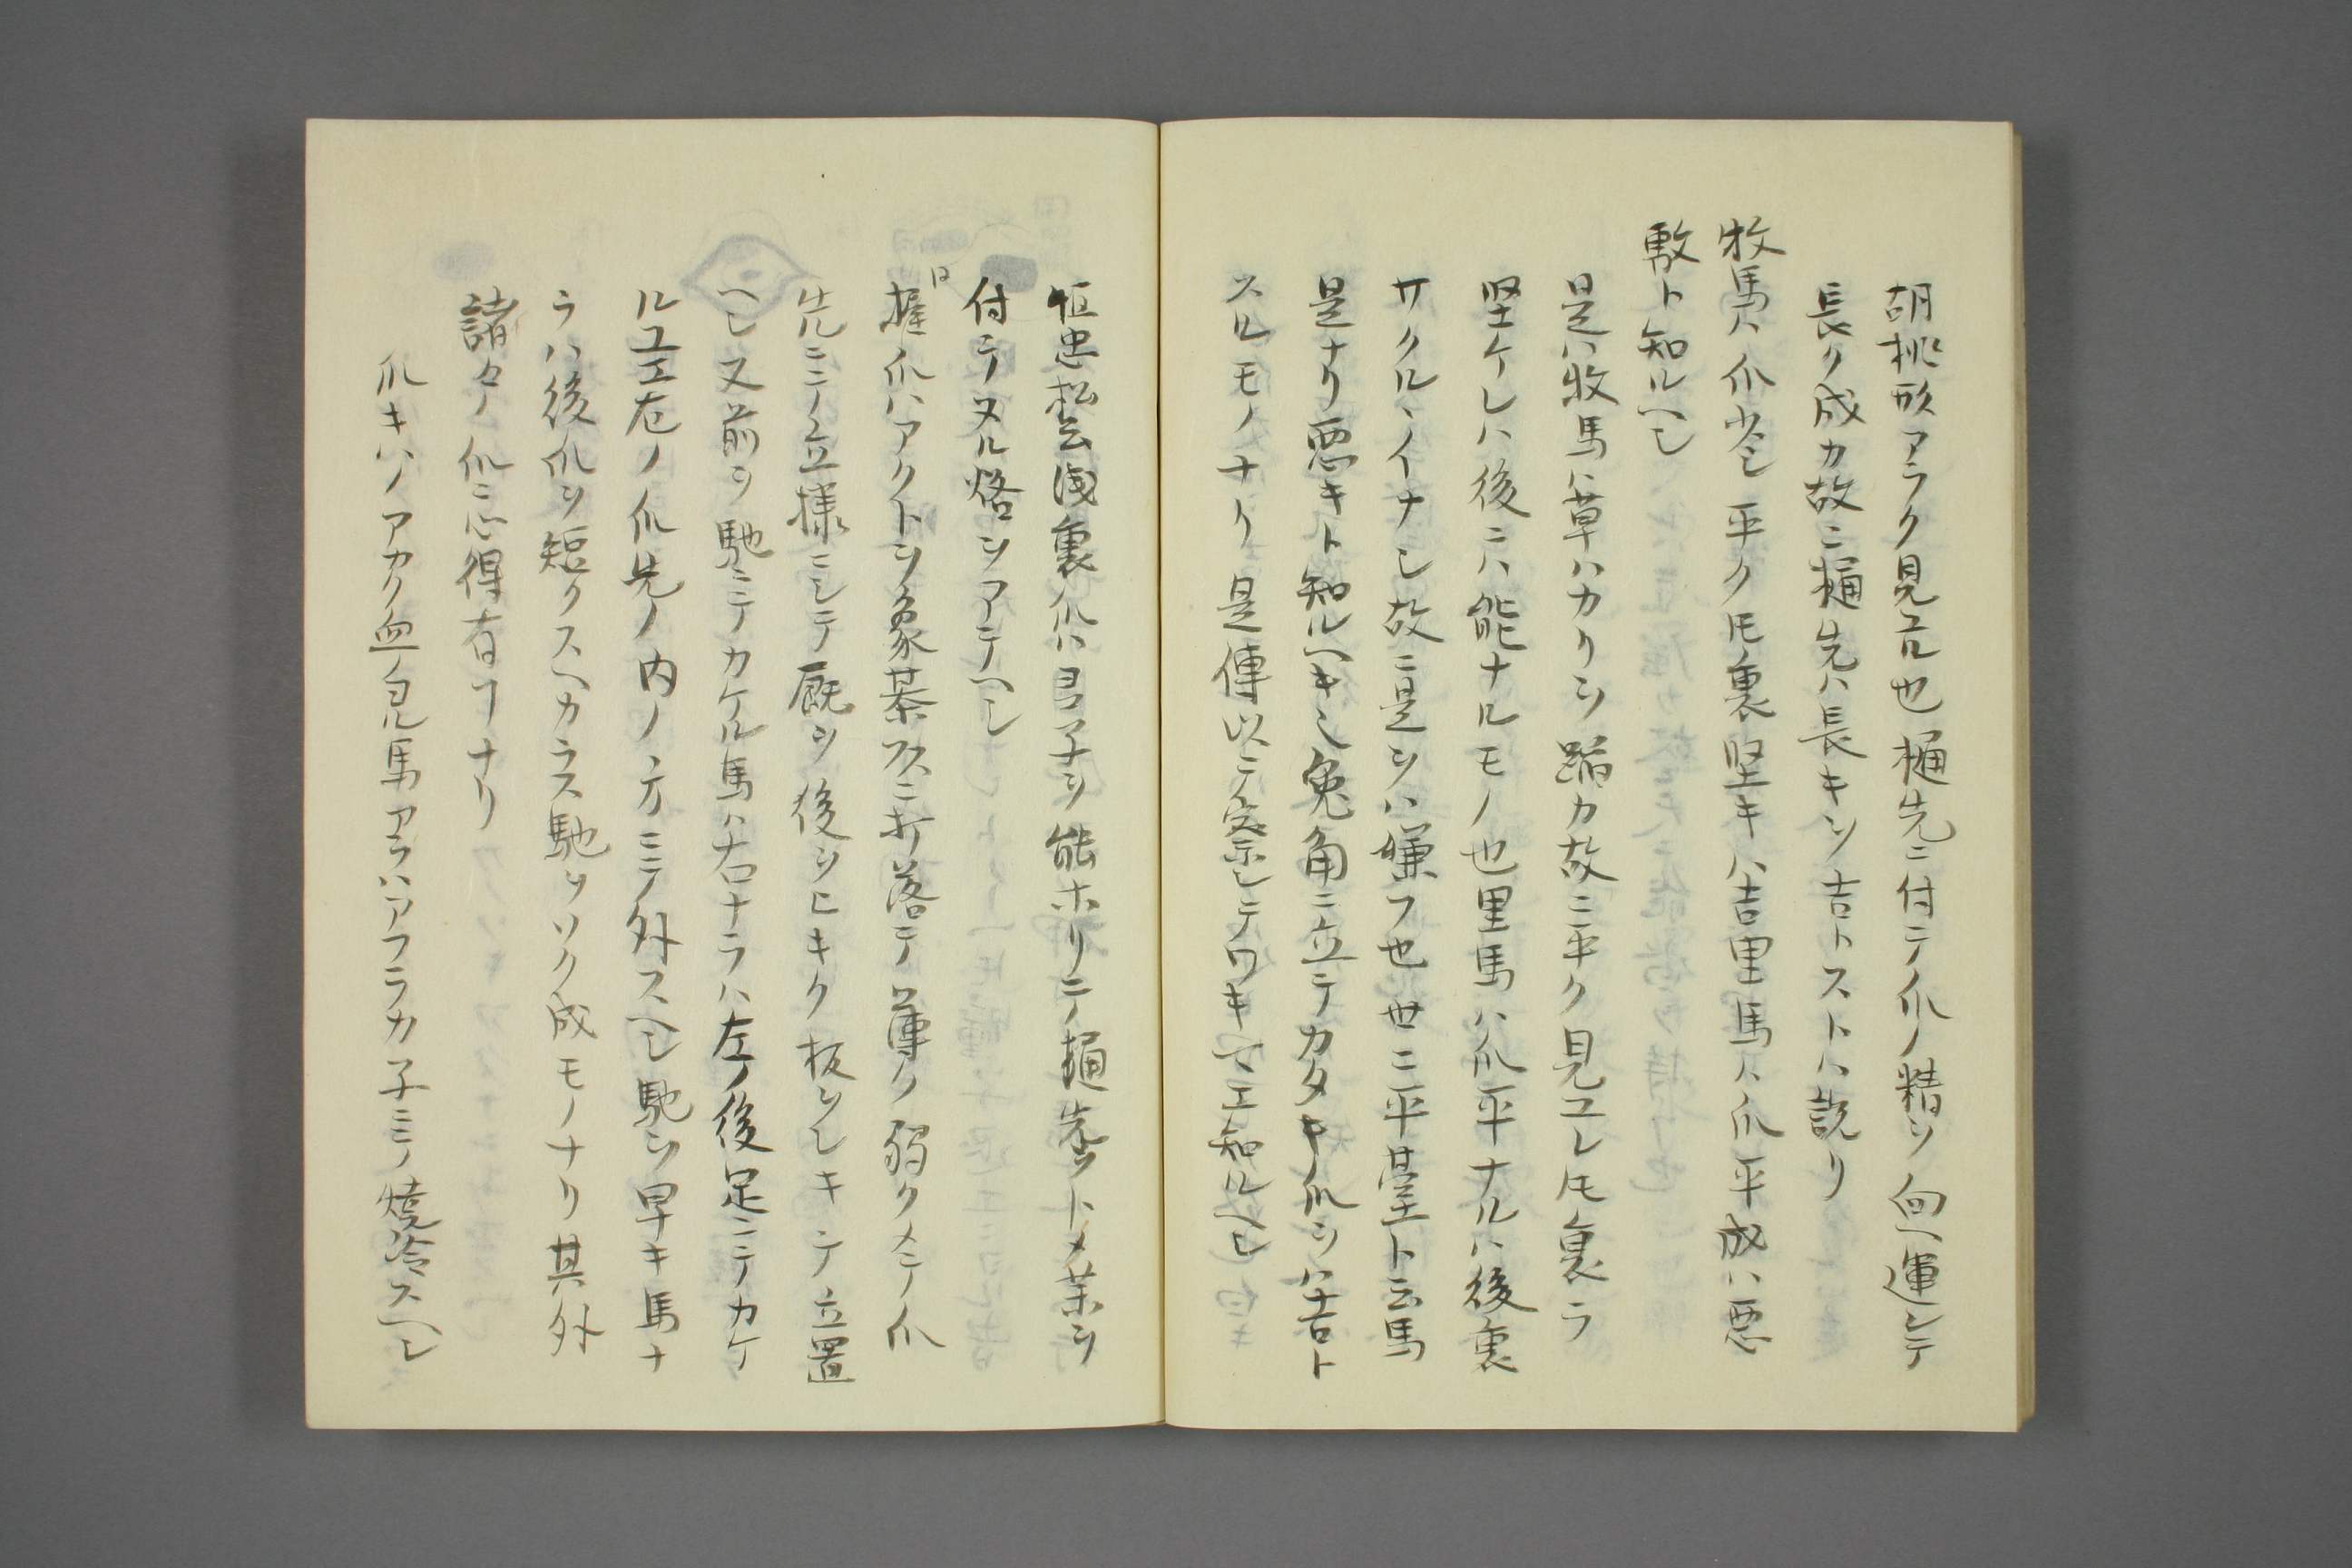 胡桃形アラク見ユル也樋先ニ付テ爪ノ精ヲ向ヘ運シテ
長ク成カ故ニ樋先ハ長キヲ吉トストハ説リ
牧馬ハ爪少シ平クトモ裏堅キハ吉里馬ハ爪平成ハ悪
敷ト知ルヘシ
是ハ牧馬ハ草ハカリヲ踏カ故ニ平ク見ユレトモ裏ラ
堅ケレハ後ニハ能ナルモノ也里馬ハ爪平ナルハ後裏
サクルヽイナシ故ニ是ヲハ嫌フ也世ニ平臺ト云馬
是ナリ悪キト知ルヘキシ兎角ニ立テカタキ爪ヲハ吉ト
スルモノナリ是傳以テ察シテワキマエ知ルヘシ
恒忠松云浅裏爪ハヨコ子ヲ能ホリテ樋先ヲトメ薬ヲ
付テヌル烙ヲアテヘシ
握爪ハアクトヲ象棊フスニ打落テ薄ク弱クメテ爪
先ニテ立様ニシテ厩ヲ後ヲヒキク板ヲシキテ立置
ヘシ又前ヲ馳ニテカケル馬ハ右ナラハ左ノ後足ニテカケ
ルユエ左ノ爪先ノ内ノ方ニテ外スヘシ馳ヲ早キ馬ナ
ラハ後爪ヲ短クスヘカラス馳ヲソク成モノナリ其外
諸々ノ爪ニ心得有ヿナリ
爪キハノアカク血ノ色ル馬アラハアフラカ子ミテ焼冷スヘシ